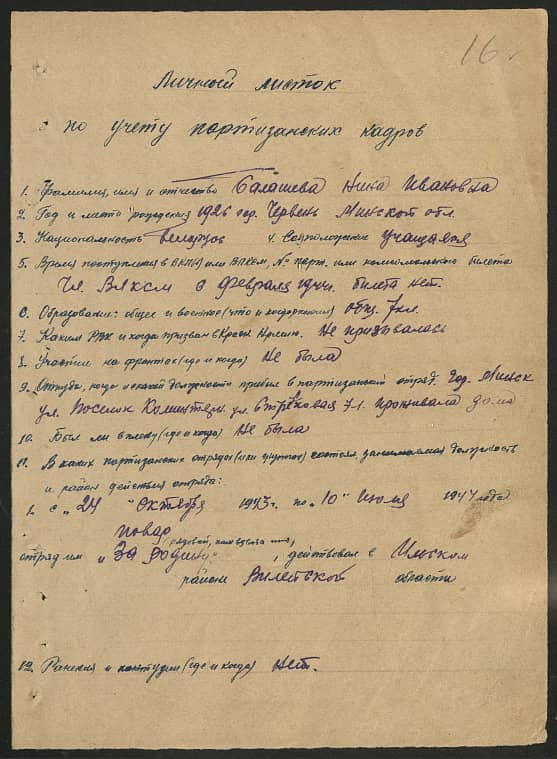 16
Личный листок
по учету партизанских кадров
1. Фамилия, имя и отчество Балашева Нина Ивановна
2. Год и место рождения 1926 год. Червень Минской обл.
3. Национальность Беларус 4. Соцположение учащаяся
5. Время поступления в ВКП(б) или ВЛКСМ, № парт. или комсомольского билета
Чл. ВЛКСМ с февраля 1944. билета нет.
6. Образование: общее и военное (что и когда окончил) общ. 7 кл.
7. Каким РВК и когда призван в Красн. Армию. Не призывалась
8. Участие на фронтах (где и когда) не была
9. Откуда, когда и какой должности прибыл в партизанский отряд. Гор. Минск
ул. Поселок Коминтерн. ул. Стрелковая 7. проживала дома
10. Был ли в плену (где и когда) Не была
11. В каких партизанских отрядах (или группах) состоял, занимаемая должность
и район действия отряда:
1. с "24" Октября 1943 г. по "10" Июля 1944 года
повар
рядовой,
отряд им "За Родину", действовал в Ильском
районе Вилейской области
12. Ранения и контузии (где и когда) нет.